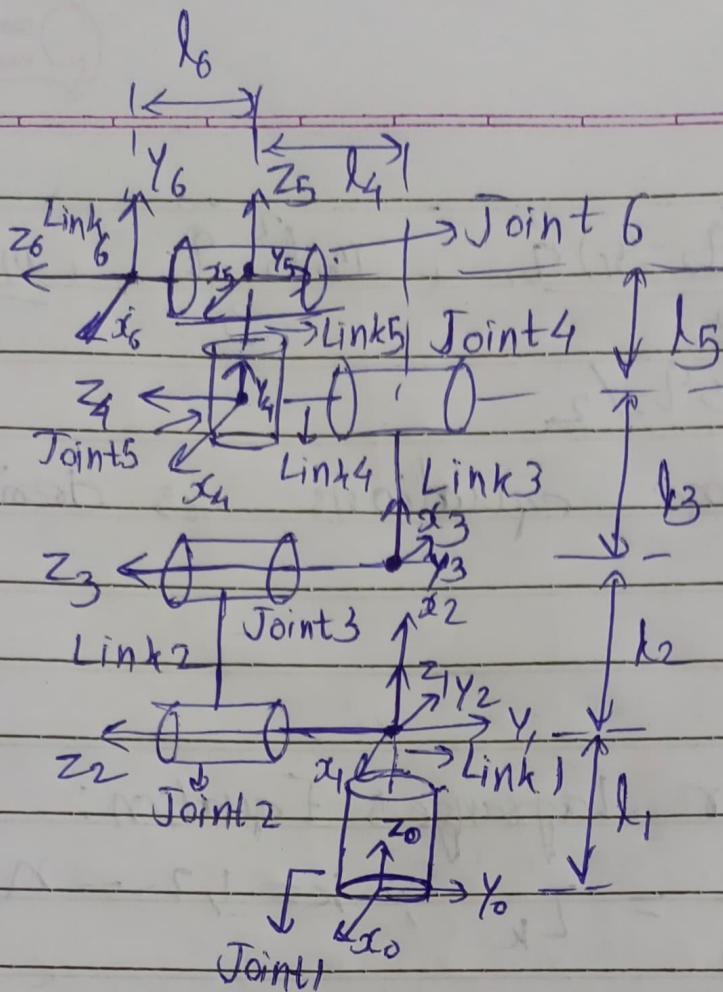 l6
Y6 Z5 l4
Link 6 Joint 6
Z6 x5 Y5
x6 Link5 Joint4 l5
Z4 Y4
Joint5
x4 Link4 Link3
x3 l3
Z3 Y3
Joint3 x2
Link2 l2
Z1 Y2
Z2 Y1
x1 Link1
Joint2 l1
Z0
Y0
x0
Joint1